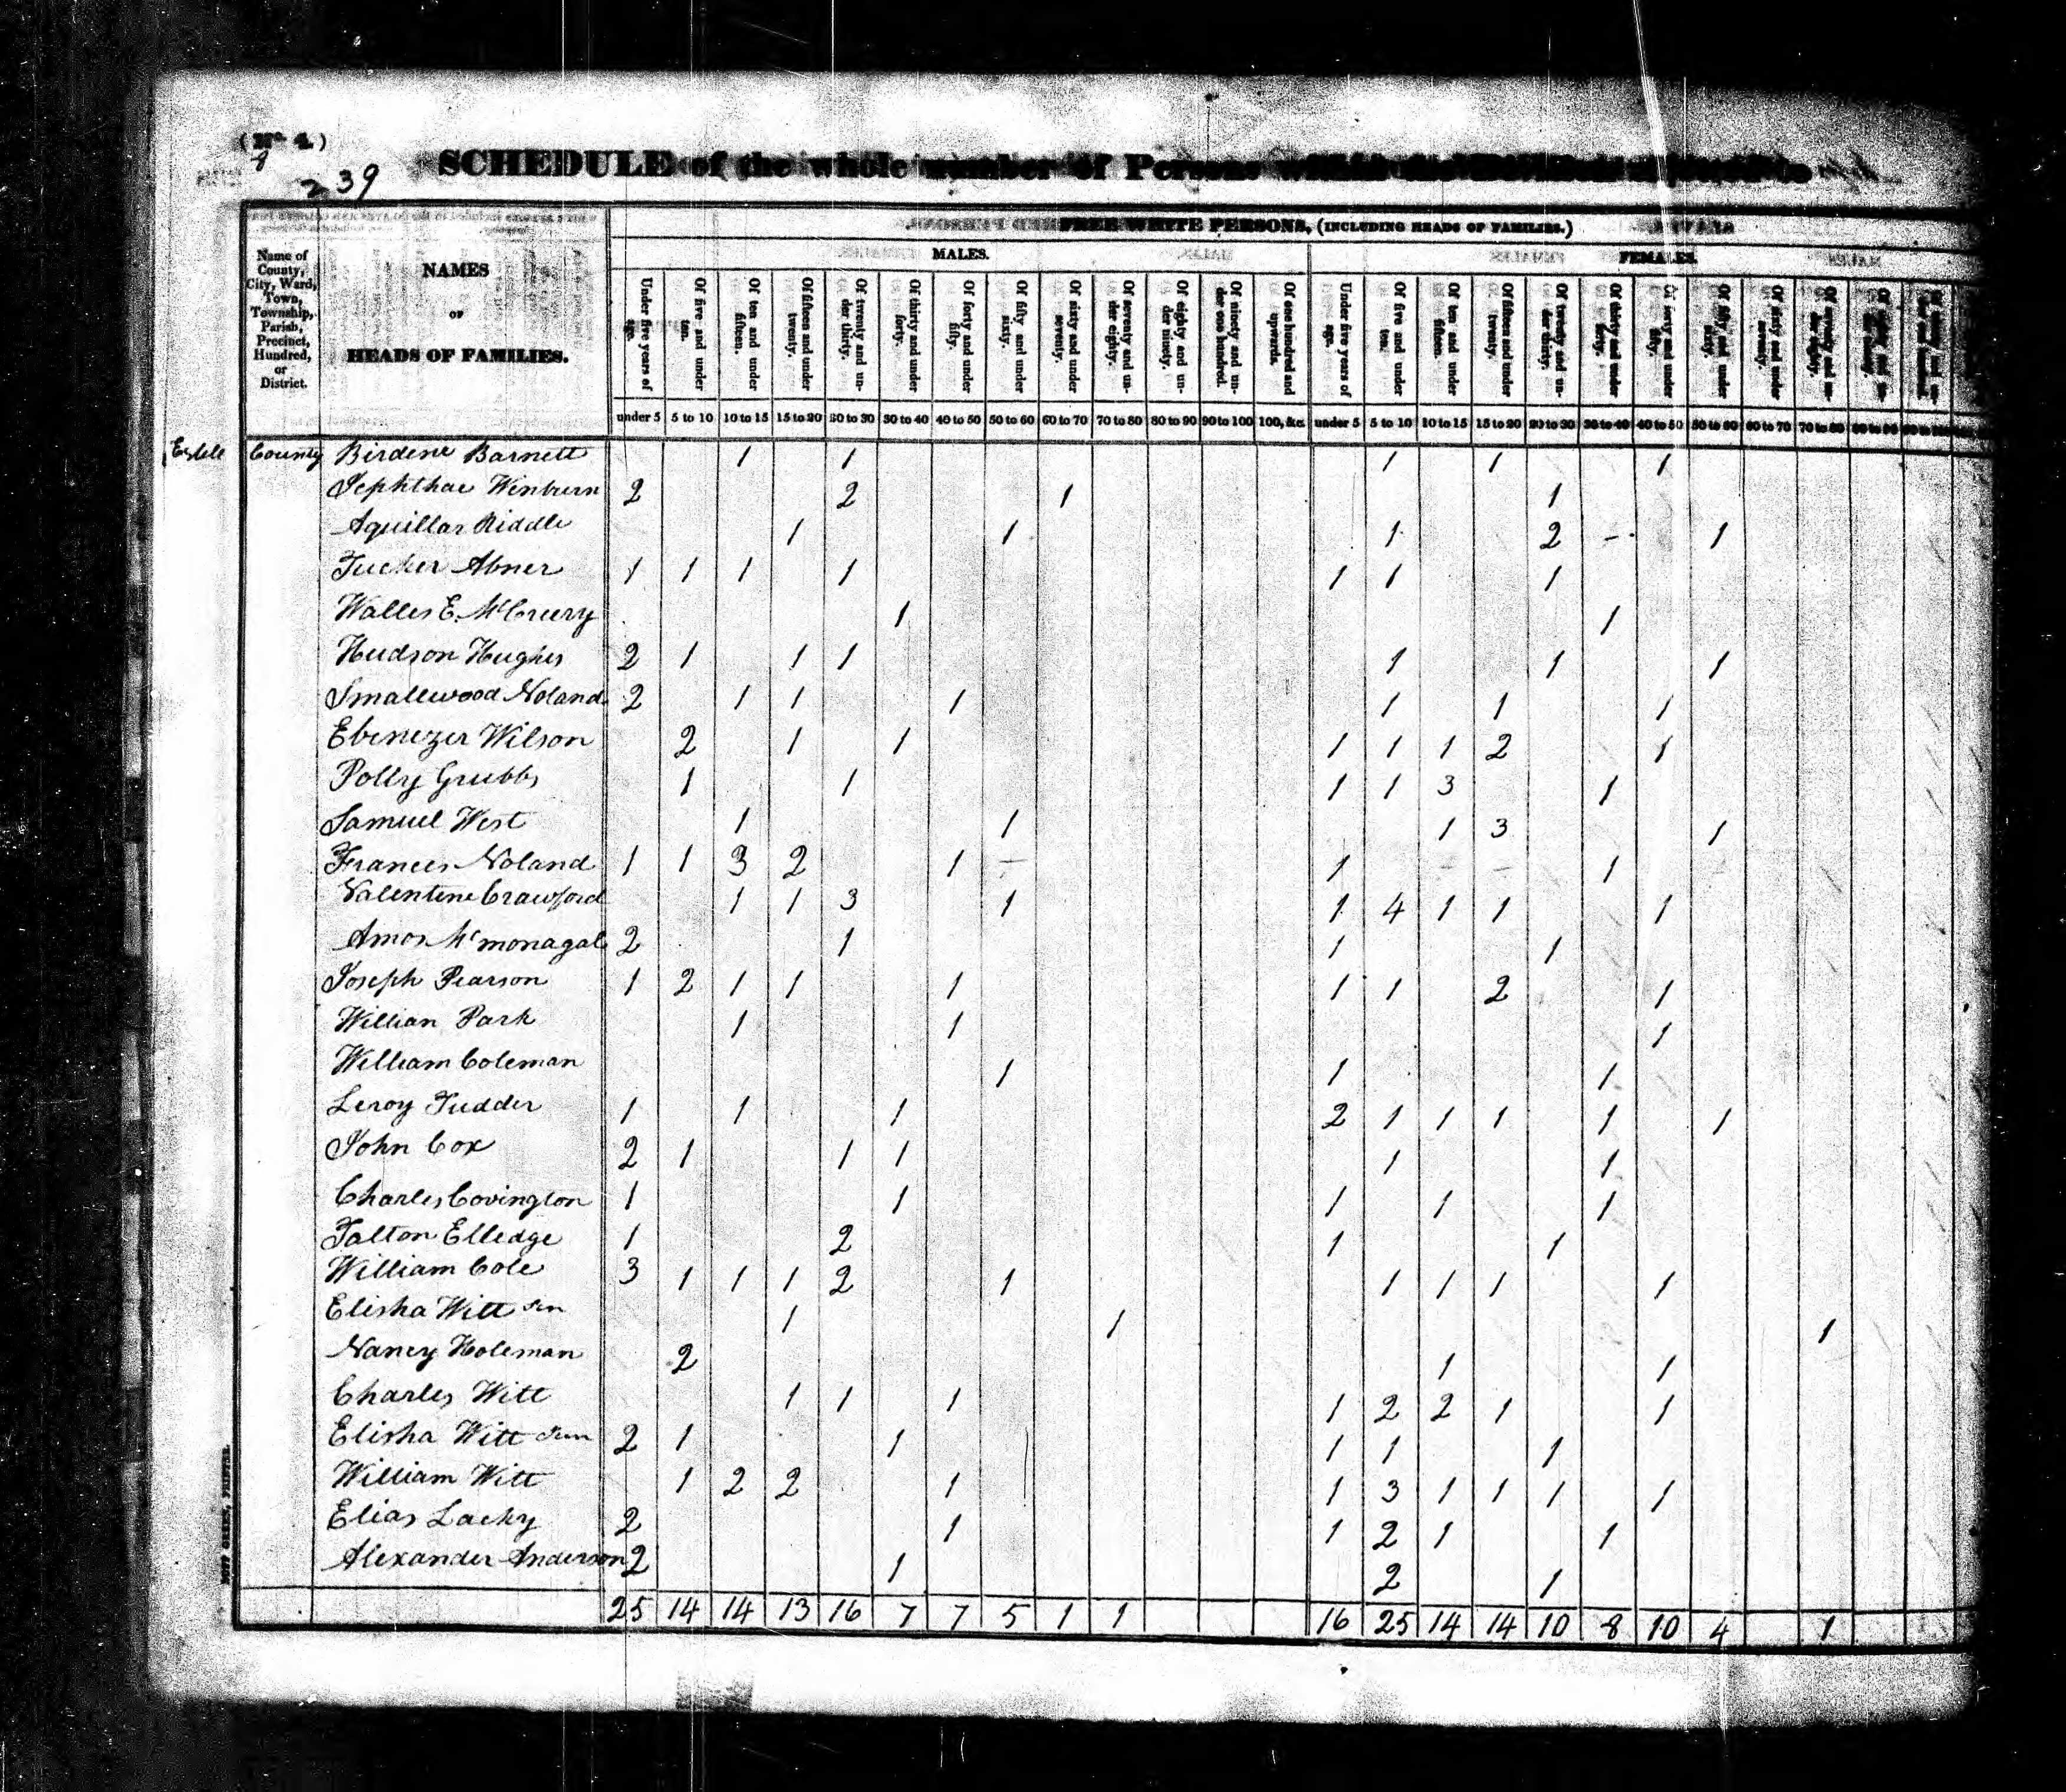 (No 4.)
239
SCHEDULE of the whole number of Persons within
FREE WHITE PERSONS, (INCLUDING HEADS OF FAMILIES.)
MALES. FEMALES.
Name of County, City, Ward, Town, Township, Parish, Precinct, Hundred, or District.
NAMES OF HEADS OF FAMILIES.
Under five years of age. Of five and under ten. Of ten and under fifteen. Of fifteen and under twenty. Of twenty and under thirty. Of thirty and under forty. Of forty and under fifty. Of fifty and under sixty. Of sixty and under seventy. Of seventy and under eighty. Of eighty and under ninety. Of ninety and under one hundred. Of one hundred and upwards. Under five years of age. Of five and under ten. Of ten and under fifteen. Of fifteen and under twenty. Of twenty and under thirty. Of thirty and under forty. Of forty and under fifty. Of fifty and under sixty. Of sixty and under seventy. Of seventy and under eighty.
under 5 5 to 10 10 to 15 15 to 20 20 to 30 30 to 40 40 to 50 50 to 60 60 to 70 70 to 80 80 to 90 90 to 100 100, &c. under 5 5 to 10 10 to 15 15 to 20 20 to 30 30 to 40 40 to 50 50 to 60 60 to 70 70 to 80
Estele County Birdene Barnett 1 1 1 1 1
Jephthae Winburn 2 2 1 1
Aquillar Riddle 1 1 1 2 - 1
Tucker Abner 1 1 1 1 1 1 1
Walles E. McCreery 1 1
Hudson Hughes 2 1 1 1 1 1 1
Smallwood Noland 2 1 1 1 1 1 1
Ebenezer Wilson 2 1 1 1 1 1 2 1
Polly Grubbs 1 1 1 1 3 1
Samuel West 1 1 1 3 1
Frances Noland 1 1 3 2 1 - 1 - - 1
Valentine Crawford 1 1 3 1 1 4 1 1 1
Amos Mcmonagal 2 1 1 1
Joseph Pearson 1 2 1 1 1 1 1 2 1
Willian Park 1 1 1
William Coleman 1 1 1
Leroy Tudder 1 1 1 2 1 1 1 1 1
John Cox 2 1 1 1 1 1
Charles Covington 1 1 1 1 1
Talton Elledge 1 2 1 1
William Cole 3 1 1 1 2 1 1 1 1 1
Elisha Witt Sen 1 1 1
Nancy Holeman 2 1 1
Charles Witt 1 1 1 1 2 2 1 1
Elisha Witt Jun 2 1 1 1 1 1
William Witt 1 2 2 1 1 3 1 1 1 1
Elias Lacky 2 1 1 2 1 1
Alexander Anderson 2 1 2 1
25 14 14 13 16 7 7 5 1 1 16 25 14 14 10 8 10 4 1